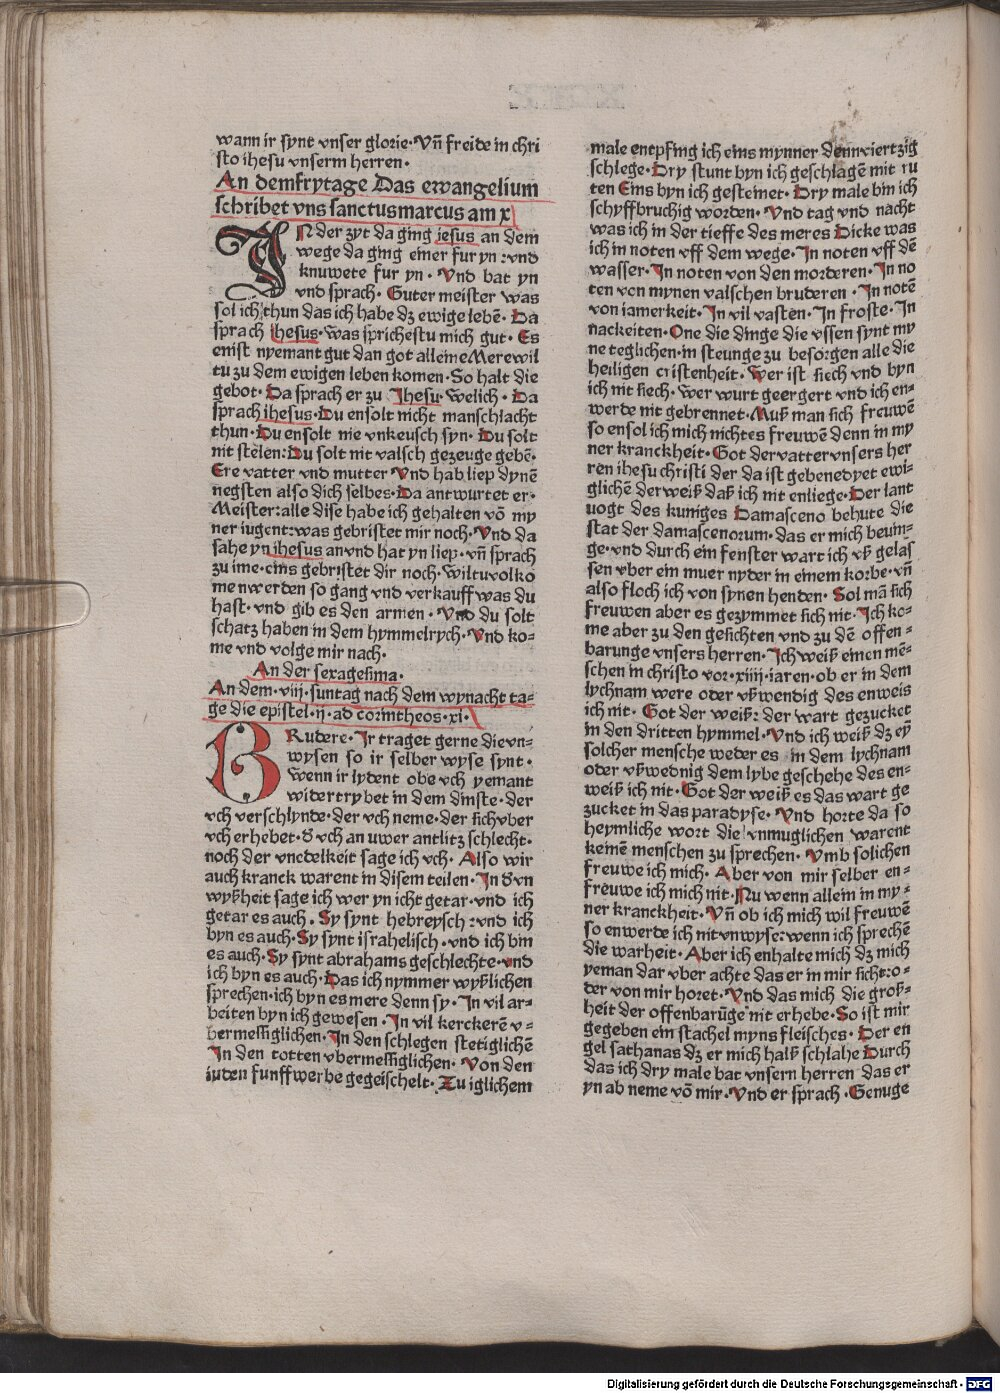 wann ir synt vnser glorie· Vn̄ freide in chri
sto ihesu vnserm herren·
An dem frytage Das ewangelium
schribet vns sanctus marcus am x
IN der zyt da ging jesus an dem
wege da ging einer fur yn : vnd
knuwete fur yn · Vnd bat yn
vnd sprach· Guter meister was
sol ich thun das ich habe dz ewige lebē· Da
sprach ihesus· was sprichestu mich gut· Es
enist nyemant gut dan got alleine Mere wil
tu zu dem ewigen leben komen· So halt die
gebot· Da sprach er zu Jhesu· Welich· Da
sprach ihesus· Du ensolt nicht manschlacht
thun· Du ensolt nie vnkeusch syn· Du solt
nit stelen: Du solt nit valsch gezeuge gebē·
Ere vatter vnd mutter Vnd hab liep dynē
negsten also dich selbes· Da antwurtet er·
Meister: alle dise habe ich gehalten vō my
ner iugent: was gebristet mir noch· Vnd da
sahe yn ihesus an vnd hat yn liep· vn̄ sprach
zu ime· eins gebristet dir noch· Wiltu volko
men werden so gang vnd verkauff was du
hast· vnd gib es den armen · Vnd du solt
schatz haben in dem hymmelrych· Vnd ko=
me vnd volge mir nach·
An der sexagesima·
An dem·viij·suntag nach dem wynacht ta=
ge die epistel·ij·ad corintheos·xi·
BRudere· Ir traget gerne die vn=
wysen so ir selber wyse synt·
Wenn ir lydent obe vch yemant
widertrybet in dem dinste· der
vch verschlynde· der vch neme· der sich vber
vch erhebet· d vch an uwer antlitz schlecht·
noch der vnedelkeit sage ich vch· Also wir
auch kranck warent in disem teilen· In d vn
wyßheit sage ich wer yn icht getar· vnd ich
getar es auch · Sy synt hebreysch : vnd ich
byn es auch· Sy synt israhelisch · vnd ich bin
es auch· Sy synt abrahams geschlechte· vnd
ich byn es auch· Das ich nymmer wyßlichen
sprechen· ich byn es mere denn sy· In vil ar=
beiten byn ich gewesen · In vil kerckerē v=
bermessiglichen· In den schlegen stetiglichē
In den totten vbermessiglichen· Von den
iuden funffwerbe gegeischelt· Zu iglichem
male entpfing ich eins mynner denn viertzig
schlege· Dry stunt byn ich geschlagē mit ru
ten Eins byn ich gesteinet· Dry male bin ich
schyffbruchig worden· Vnd tag vnd nacht
was ich in der tieffe des meres Dicke was
ich in noten vff dem wege· In noten vff dē
wasser· In noten von den morderen· In no
ten von mynen valschen bruderen · In notē
von iamerkeit· In vil vasten· In froste· In
nackeiten· One die dinge die vssen synt my
ne teglichen· in steunge zu besorgen alle die
heiligen cristenheit· Wer ist siech vnd byn
ich nit siech· Wer wurt geergert vnd ich en=
werde nit gebrennet· Muß man sich freuwē
so ensol ich mich nichtes freuwē denn in my
ner kranckheit· Got der vatter vnsers her
ren ihesu christi der da ist gebenedyet ewi=
glichē der weiß daß ich nit enliege· Der lant
uogt des kuniges Damasceno behute die
stat der damascenorum· das er mich beuin=
ge· vnd durch ein fenster wart ich vß gelas
sen vber ein muer nyder in einem korbe· vn̄
also floch ich von synen henden· Sol mā sich
freuwen aber es gezymmet sich nit· Ich ko=
me aber zu den gesichten vnd zu dē offen=
barunge vnsers herren· Ich weiß einen mē=
schen in christo vor·xiiij·iaren· ob er in dem
lychnam were oder vßwendig des enweis
ich nit· Got der weiß: der wart gezucket
in den dritten hymmel· Vnd ich weiß dz eȳ
solcher mensche weder es in dem lychnam
oder vßwednig dem lybe geschehe des en=
weiß ich nit· Got der weiß es das wart ge
zucket in das paradyse· Vnd horte da so
heymliche wort die vnmuglichen warent
keinē menschen zu sprechen· Vmb solichen
freuwe ich mich· Aber von mir selber en=
freuwe ich mich nit· Nu wenn allein in my=
ner kranckheit· Vn̄ ob ich mich wil freuwē
so enwerde ich nit vnwyse: wenn ich sprechē
die warheit· Aber ich enhalte mich dz mich
yeman dar vber achte das er in mir sicht: o=
der von mir horet· Vnd das mich die groß=
heit der offenbarūge nit erhebe· So ist mir
gegeben ein stachel myns fleisches· Der en
gel sathanas dz er mich halß schlahe Durch
das ich dry male bat vnsern herren das er
yn ab neme vō mir· Vnd er sprach· Genuge
Digitalisierung gefördert durch die Deutsche Forschungsgemeinschaft - DFG